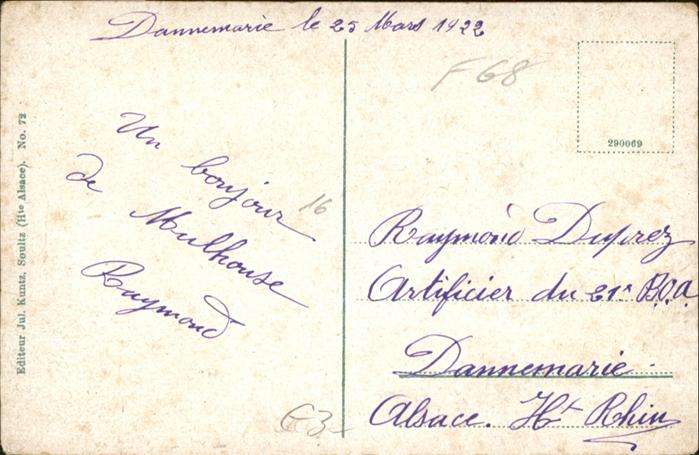 Dannemarie le 25 Mars 1922
F 68
290069
Un bonjour
de Mulhouse
Raymond
16
Raymond Duprez
Artificier du 21e B.O.a
Dannemarie
Alsace. Ht Rhin
€3-
Editeur Jul. Kuntz, Soultz (Hte Alsace). No. 72